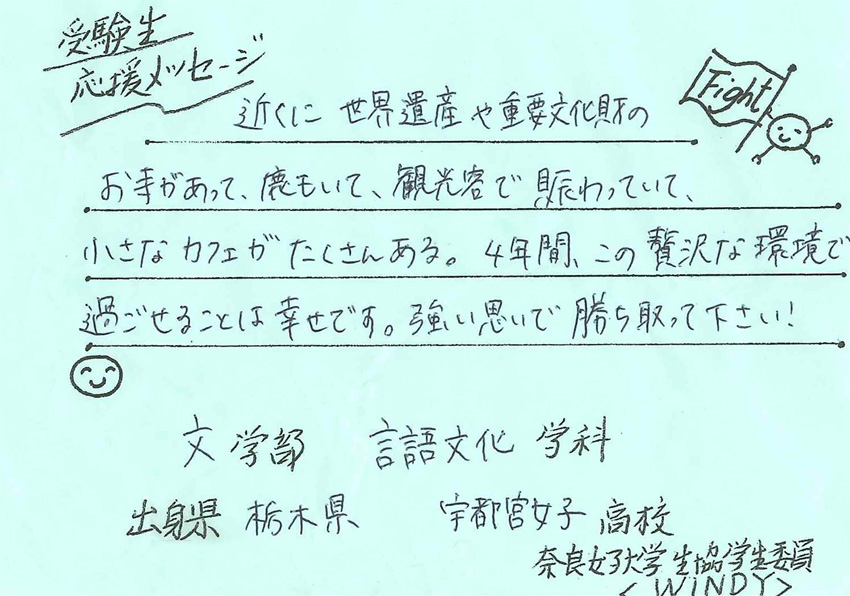 受験生
応援メッセージ
Fight
近くに世界遺産や重要文化財の
お寺があって、鹿もいて、観光客で賑わっていて、
小さなカフェがたくさんある。4年間、この贅沢な環境で
過ごせることは幸せです。強い思いで勝ち取って下さい!
文学部 言語文化学科
出身県 栃木県 宇都宮女子高校
奈良女子大学生協学生委員
<WINDY>